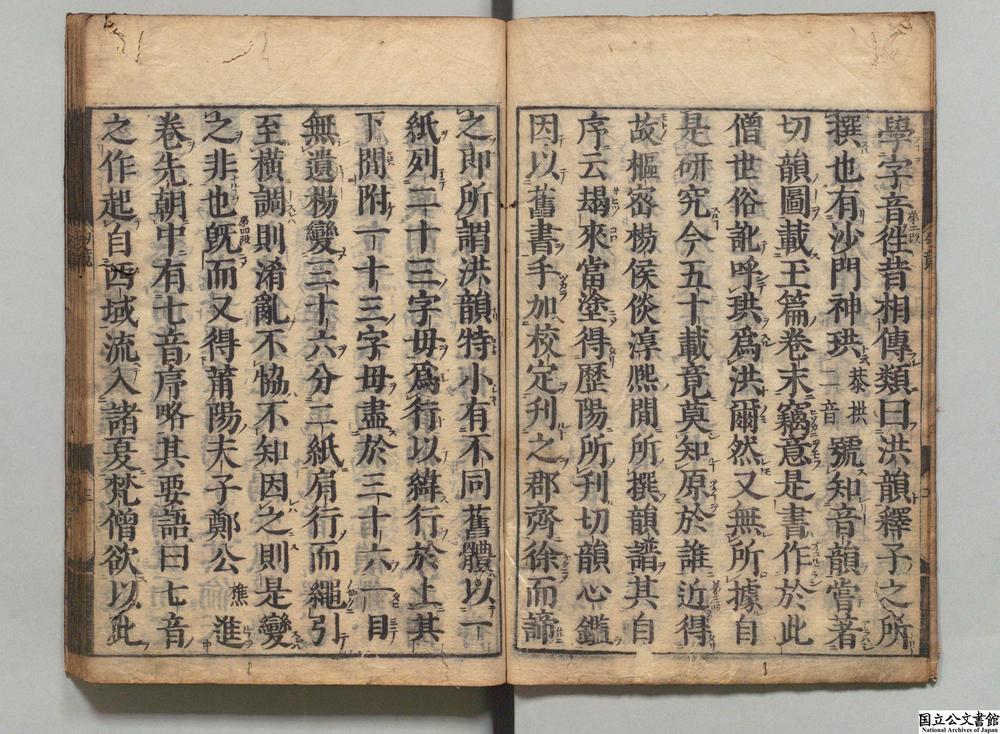 學字音徃昔相傳類曰洪韻釋子之所
撰也有沙門神珙恭拱二音號知音韻嘗著
切韻圖載玉篇卷末竊意是書作於此
僧世俗訛呼珙爲洪爾然又無所據自
是研究今五十載竟莫知原於誰近得
故樞宻楊侯倓淳熈閒所撰韻譜其自
序云朅來當塗得歴陽所刊切韻心鑑
因以舊書手加校定刋之郡齊徐而諦
之即所謂洪韻特小有不同舊體以一
紙列二十三字毋爲行以緯行於上其
下閒附一十三字毋盡於三十六一目
無遺楊變三十六分二紙肩行而繩引
至橫調則淆亂不恊不知因之則是變
之非也旣而又得莆陽夫子鄭公樵進
卷先朝中有七音序略其要語曰七音
之作起自西域流入諸夏梵僧欲以此
国立公文書館
National Archives of Japan